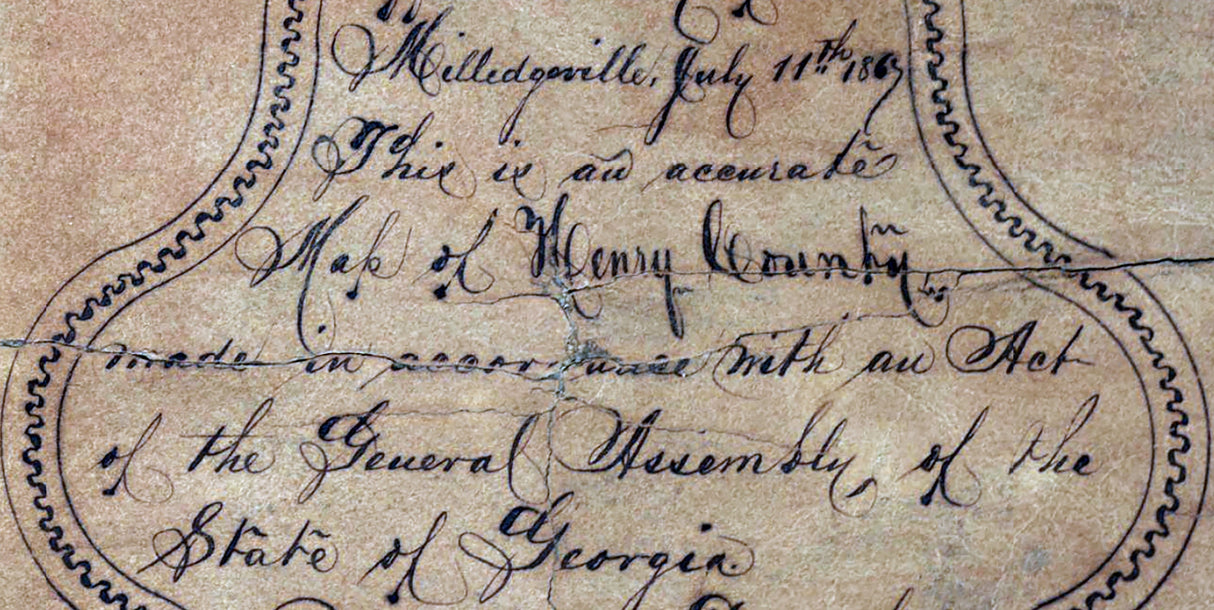 Milledgeville, July 11th 1867
This is an accurate
Map of Henry County,
made in accordance with an Act
of the General Assembly of the
State of Georgia.